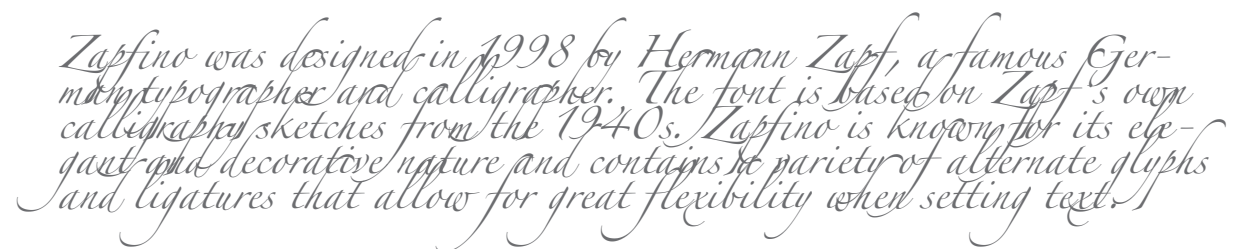 Zapfino was designed in 1998 by Hermann Zapf, a famous Ger-
man typographer and calligrapher. The font is based on Zapf's own
calligraphy sketches from the 1940s. Zapfino is known for its ele-
gant and decorative nature and contains a variety of alternate glyphs
and ligatures that allow for great flexibility when setting text.